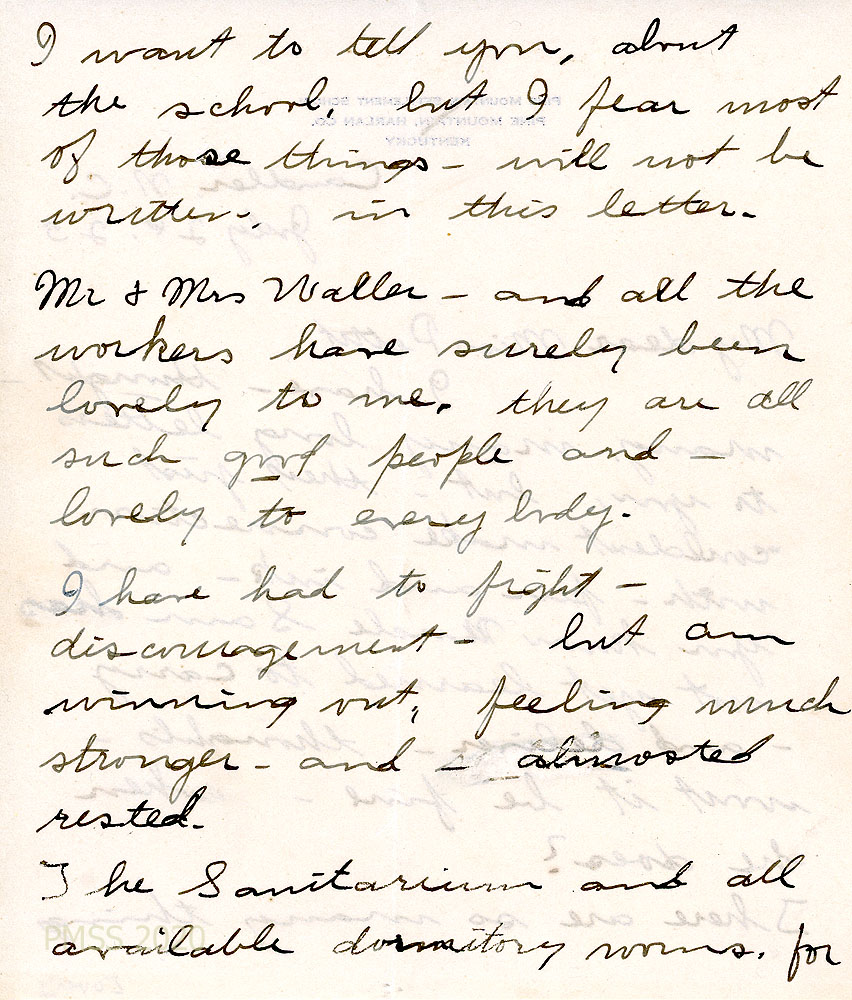 I want to tell you, about
the school, but I fear most
of those things - will not be
written. in this letter.
Mr & Mrs Waller - and all the
workers have surely been
lovely to me. they are all
such good people and -
lovely to every body.
I have had to fight -
discouragement - but am
winning out, feeling much
stronger - and - almosted
rested.
The Sanitarium and all
available dormitory rooms. for
PMSS 2020